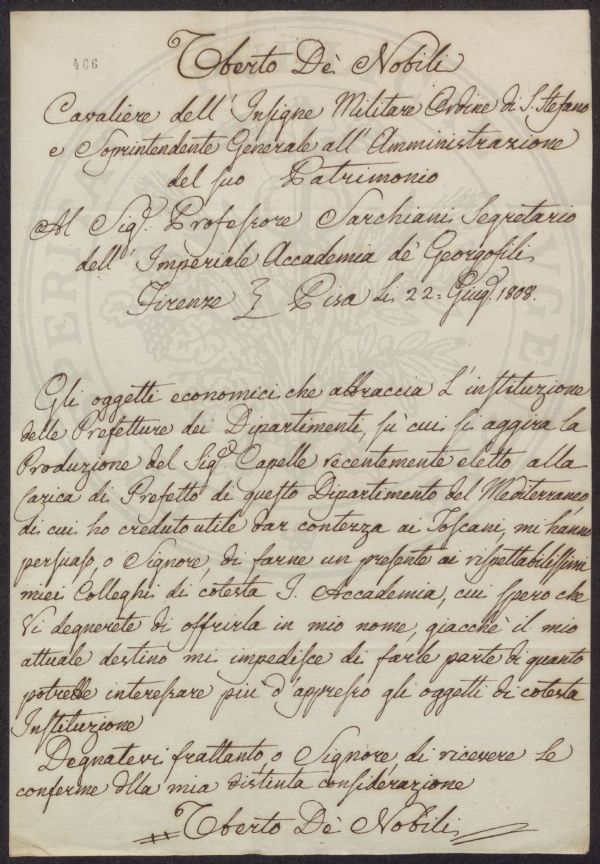 466
Uberto De' Nobili
Cavaliere dell'Insigne Militare Ordine di S. Stefano
e Soprintendente Generale all'Amministrazione
del suo Patrimonio
Al Sig.r Professore Sarchiani Segretario
dell'Imperiale Accademia de' Georgofili
Firenze } Pisa li 22 = Giug.o 1808.
Gli oggetti economici che abbraccia l'instituzione
delle Prefetture dei Dipartimenti, sù cui si aggira la
Produzione del Sig.r Capelle recentemente eletto alla
Carica di Prefetto di questo Dipartimento del Mediterraneo
di cui ho creduto utile dar contezza ai Toscani, mi hanno
persuaso, o Signore, di farne un presente ai rispettabilissimi
miei Colleghi di cotesta I. Accademia, cui spero che
Vi degnerete di offrirla in mio nome, giacchè il mio
attuale destino mi impedisce di farle parte di quanto
potrebbe interessare più d'appresso gli oggetti di cotesta
Instituzione
Degnatevi frattanto, o Signore, di ricevere le
conferme della mia distinta considerazione
Uberto De' Nobili